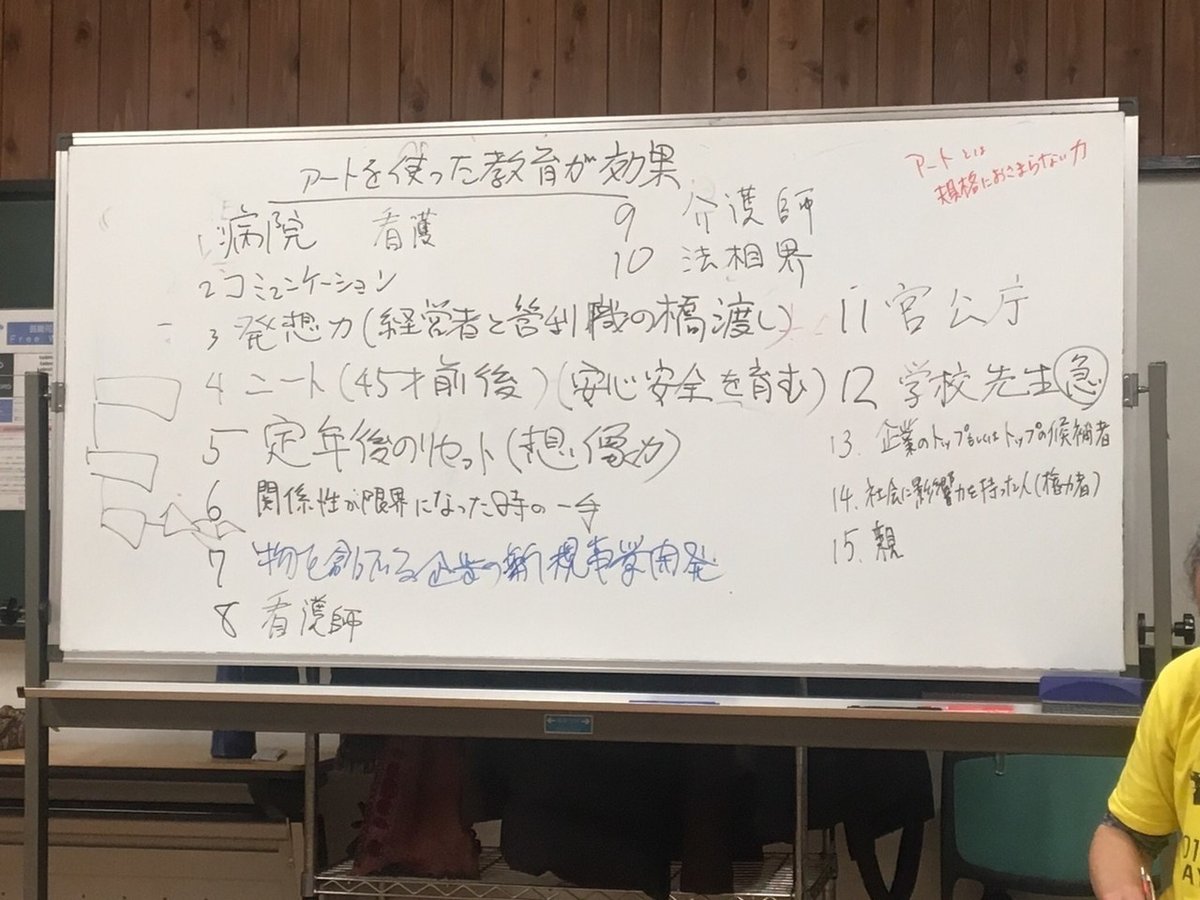 アートを使った教育が効果
アートとは
規格におさまらない力
1. 病院 看護
2 コミュニケーション
3 発想力(経営者と管利職の橋渡し)
4 ニート(45才前後)(安心安全を育む)
5 定年後のリセット(想像力)
6 関係性が限界になった時の一手
7 物を創っている企業の新規事業開発
8 看護師
9 介護師
10 法相界
11 官公庁
12 学校先生 急
13. 企業のトップもしくはトップの候補者
14. 社会に影響力を持った人(権力者)
15. 親
Free W